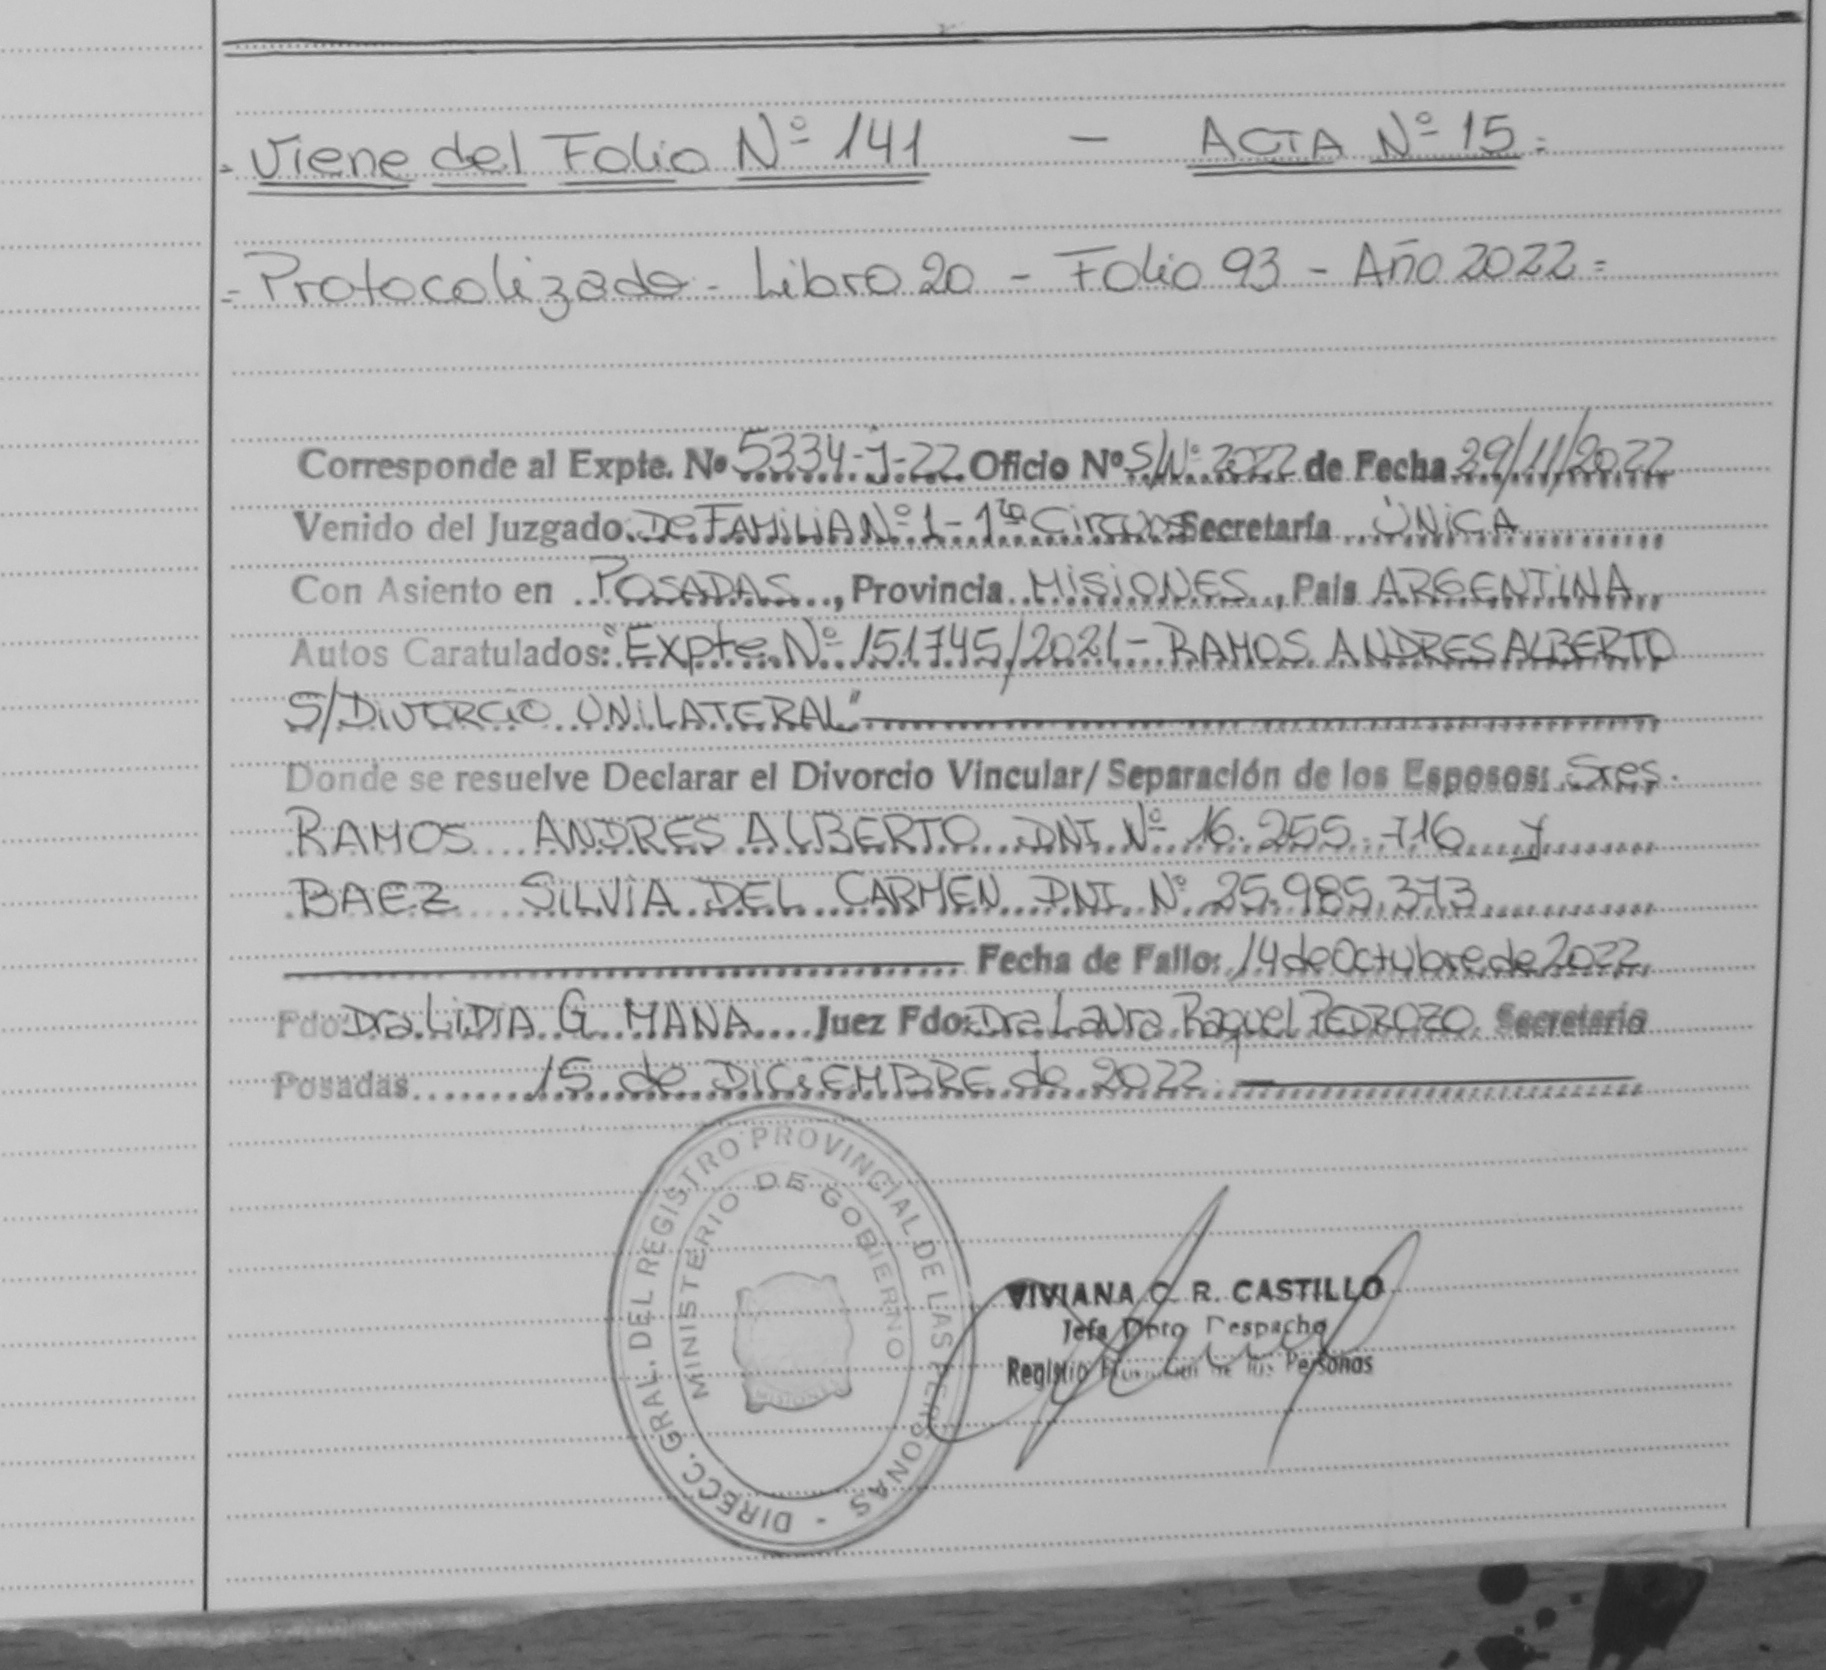 = Viene del Folio Nº 141 - ACTA Nº 15 =
= Protocolizado - Libro 20 - Folio 93 - Año 2022 =
Corresponde al Expte. Nº 5334-J-22 Oficio Nº S/Nº 2022 de Fecha 29/11/2022
Venido del Juzgado De FAMILIA Nº 1 - 1ra Circuns Secretaría ÚNICA
Con Asiento en POSADAS, Provincia MISIONES, País ARGENTINA
Autos Caratulados: "Expte Nº 151745/2021 - RAMOS ANDRES ALBERTO
S/DIVORCIO UNILATERAL"
Donde se resuelve Declarar el Divorcio Vincular/ Separación de los Esposos: Sres.
RAMOS ANDRES ALBERTO DNI Nº 16.255.716 y
BAEZ SILVIA DEL CARMEN DNI Nº 25.985.373
Fecha de Fallo: 14 de Octubre de 2022
Fdo: Dra. LIDIA G. MANA Juez Fdo: Dra Laura Raquel PEDROZO Secretaria
Posadas 15 de DICIEMBRE de 2022.
DIRECC. GRAL. DEL REGISTRO PROVINCIAL DE LAS PERSONAS -
MINISTERIO DE GOBIERNO
VIVIANA C. R. CASTILLO
Jefa Dpto Despacho
Registro de las Personas